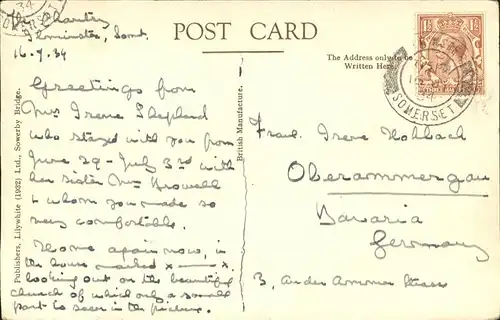 POST CARD
The Address only to be
Written Here
The Chantry
Ilminster, Somt.
16-7-34
Greetings from
Mrs Irene Shepherd
who stayed with you from
June 29 - July 3rd with
her sister Mrs Browell
& whom you made so
very comfortable.
Home again now, in
the house marked x
looking out on the beautiful
church of which only a small
part is seen in the picture.
Publishers, Lilywhite (1932) Ltd., Sowerby Bridge.
British Manufacture.
SOMERSET
Fraul. Irene Hollbach
Oberammergau
Bavaria
Germany
3, An der Ammer Strasse